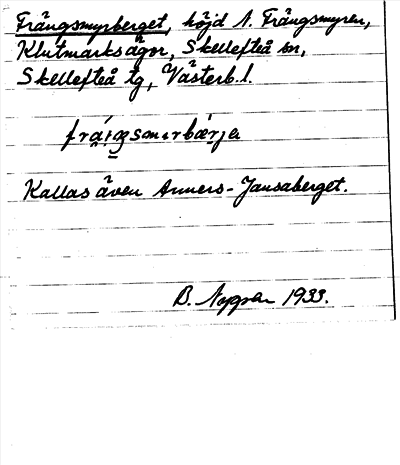 Frängsmyrberget, höjd N. Frängsmyren,
Klutmarksägor, Skellefteå sn,
Skellefteå tg, Västerb. l.
fráŋsmɪrbærjə
Kallas även Anners-Jansaberget.
B. Nygren 1933.